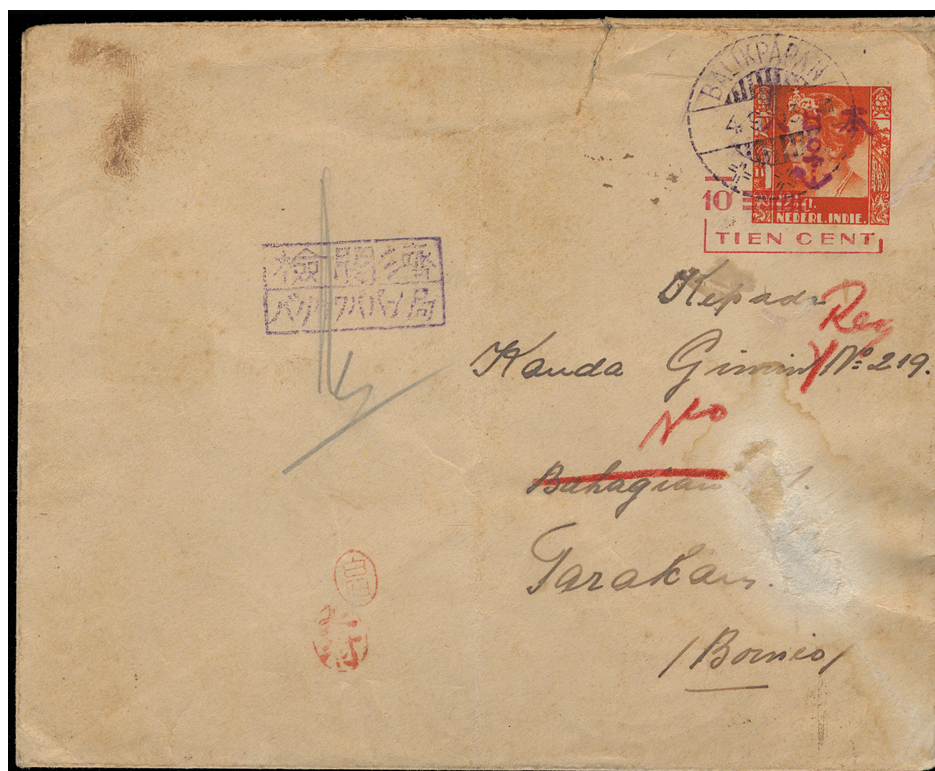 BALIKPAPAN
10
NEDERL. INDIE.
TIEN CENT
檢閲濟
バリックパパン局
Kepada
Rey
Kanda Gimin No 219.
No
Bahagian
Tarakan.
/Borneo/